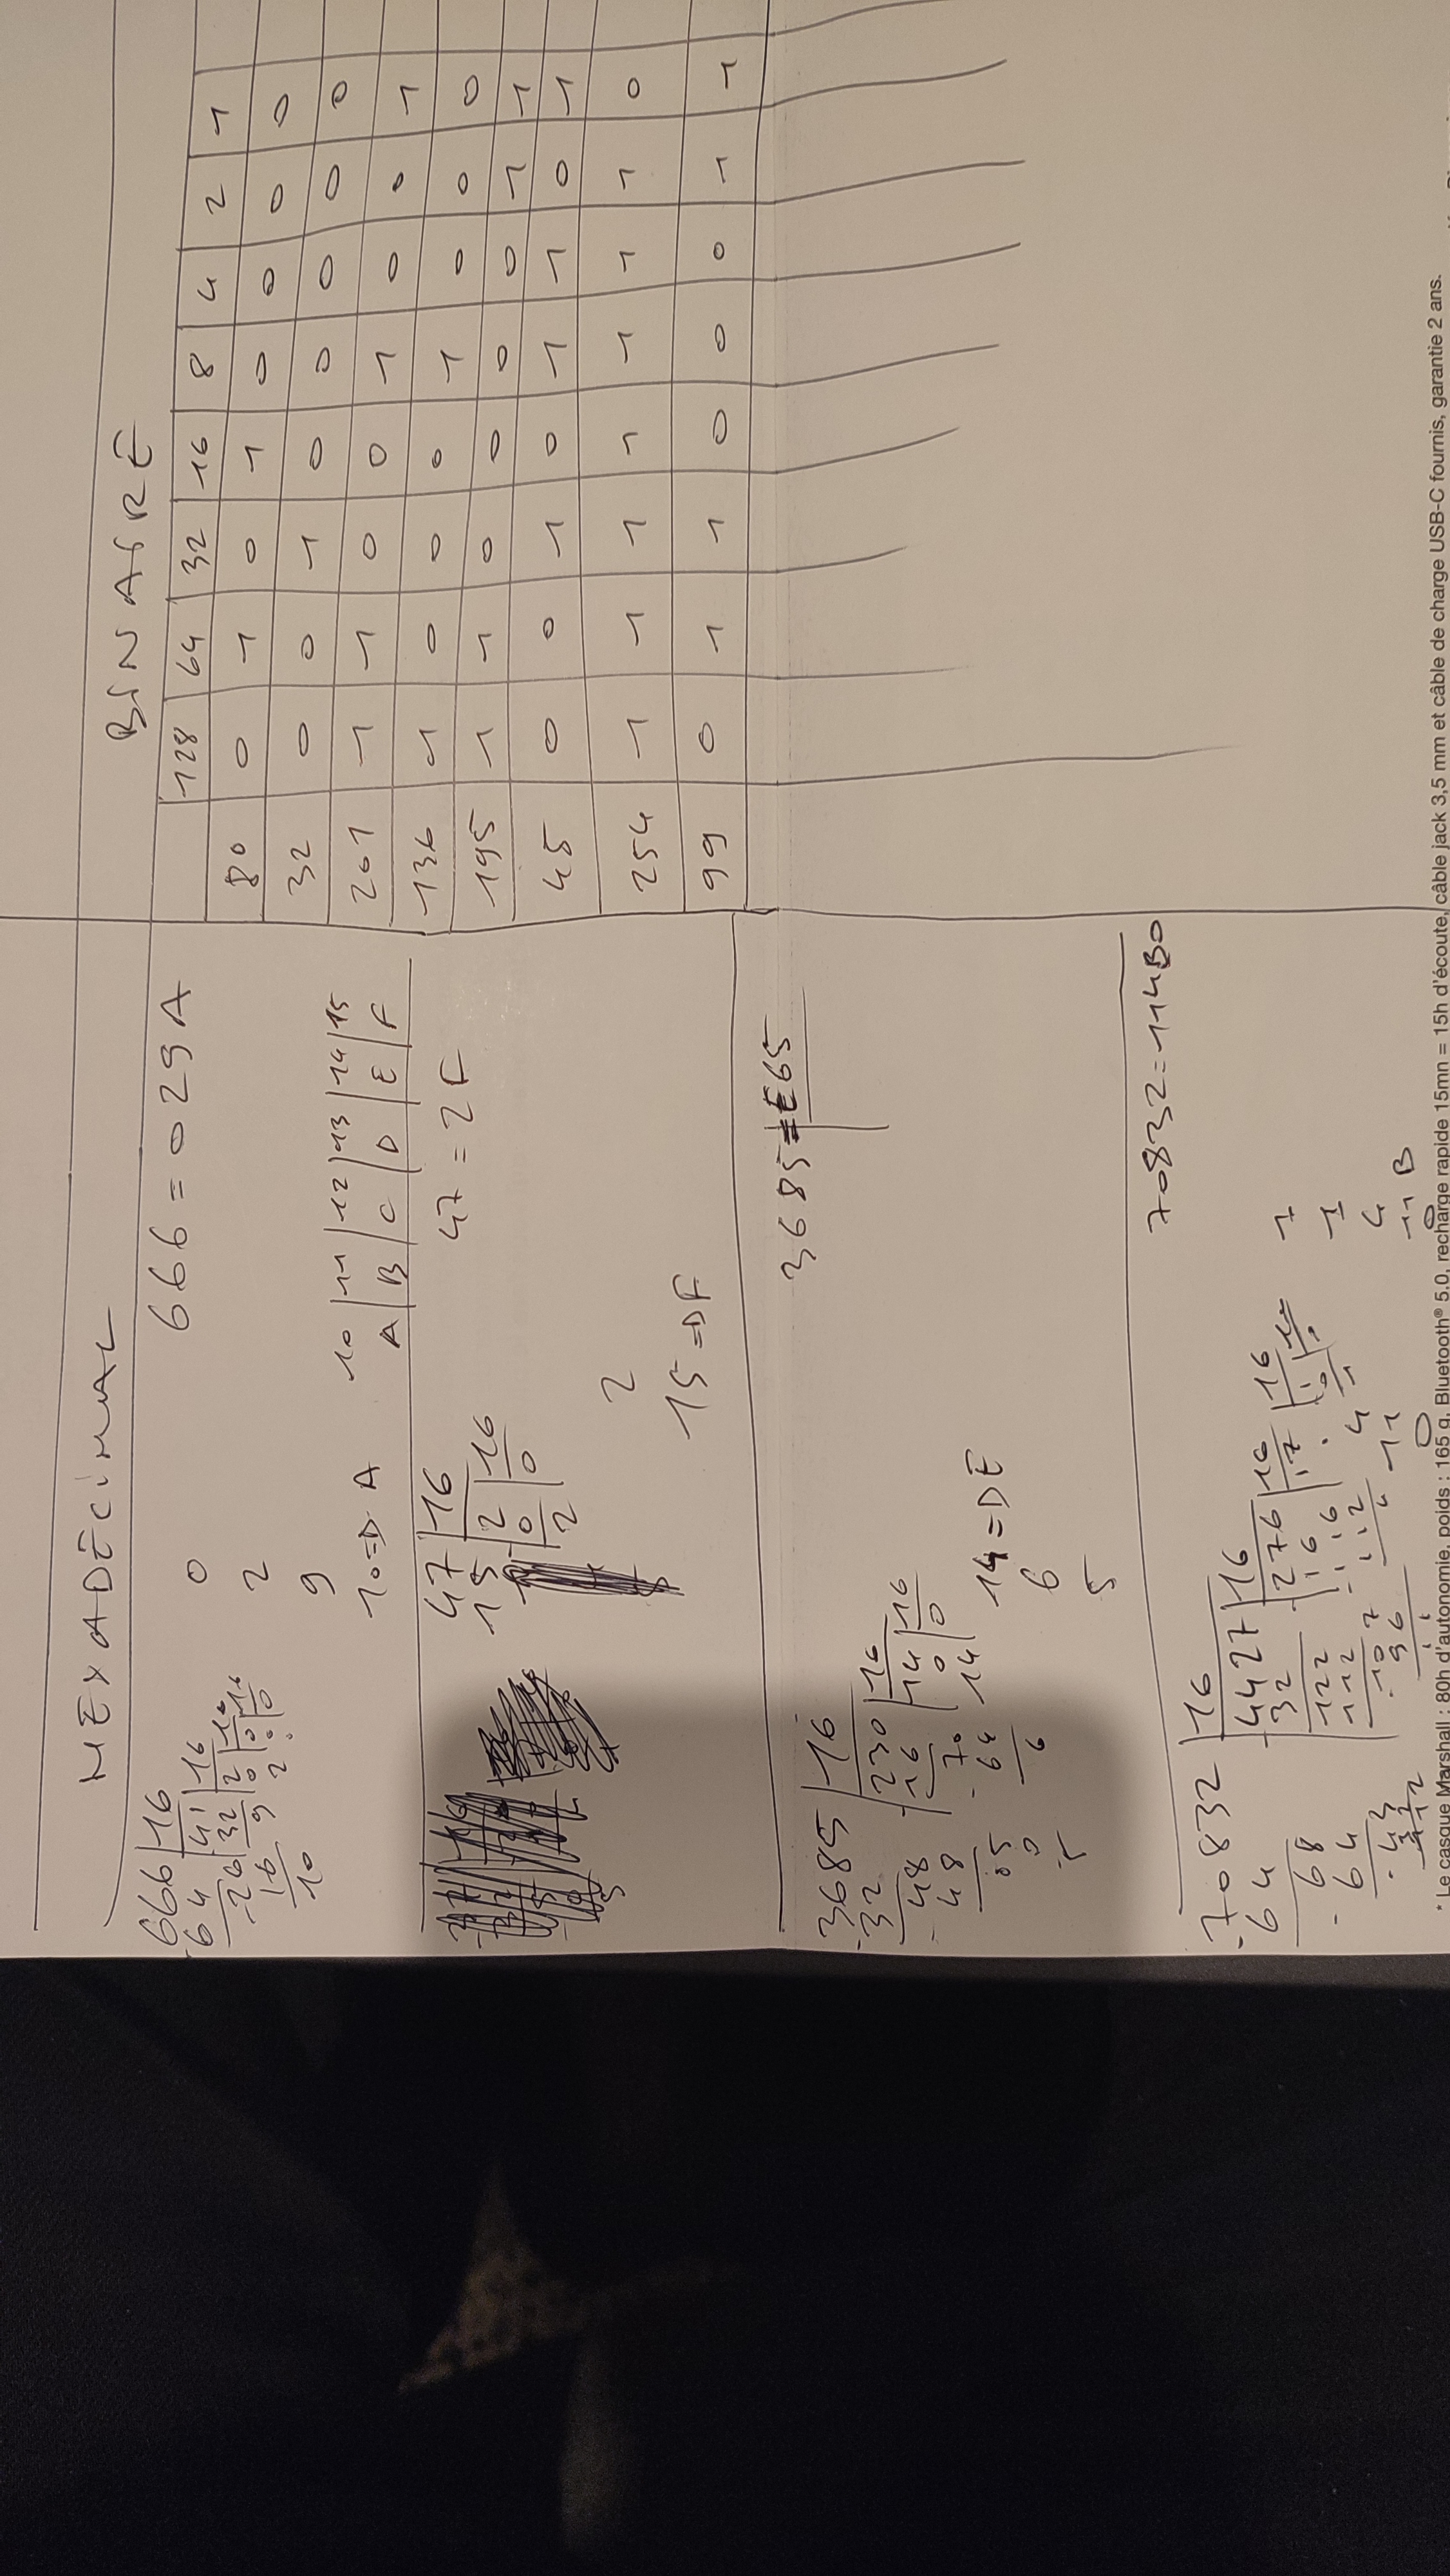 HEXADÉCIMAL
666 | 16
64 | 41 | 16
26 | 32 | 2 | 16
16 | 9 | 0 | 0 | 16
10 | 2 | 0 | 0
666 = 029A
0
2
9
10 => A
10 | 11 | 12 | 13 | 14 | 15
A | B | C | D | E | F
47 | 16
15 | 2 | 16
0 | 0
2
47 = 2F
2
15 => F
3685 = E65
3685 | 16
32 | 230 | 16
48 | 16 | 14 | 16
48 | 70 | 0 | 0
05 | 64 | 14
0 | 6
5
14 => E
6
5
70832 = 114B0
70832 | 16
64 | 4427 | 16
68 | 32 | 276 | 16 | 16
64 | 122 | 16 | 17
43 | 112 | 116
32 | 107 | 112 | 4
112 | 96 | 4 | 11
11 | 0
1
1
4
11 B
0
BINAIRE
128 64 32 16 8 4 2 1
80 0 1 0 1 0 0 0 0
32 0 0 1 0 0 0 0 0
201 1 1 0 0 1 0 0 1
136 1 0 0 0 1 0 0 0
195 1 1 0 0 0 0 1 1
45 0 0 1 0 1 1 0 1
254 1 1 1 1 1 1 1 0
99 0 1 1 0 0 0 1 1
* Le casque Marshall : 80h d'autonomie, poids : 165 g, Bluetooth® 5.0, recharge rapide 15mn = 15h d'écoute, câble jack 3,5 mm et câble de charge USB-C fournis, garantie 2 ans.